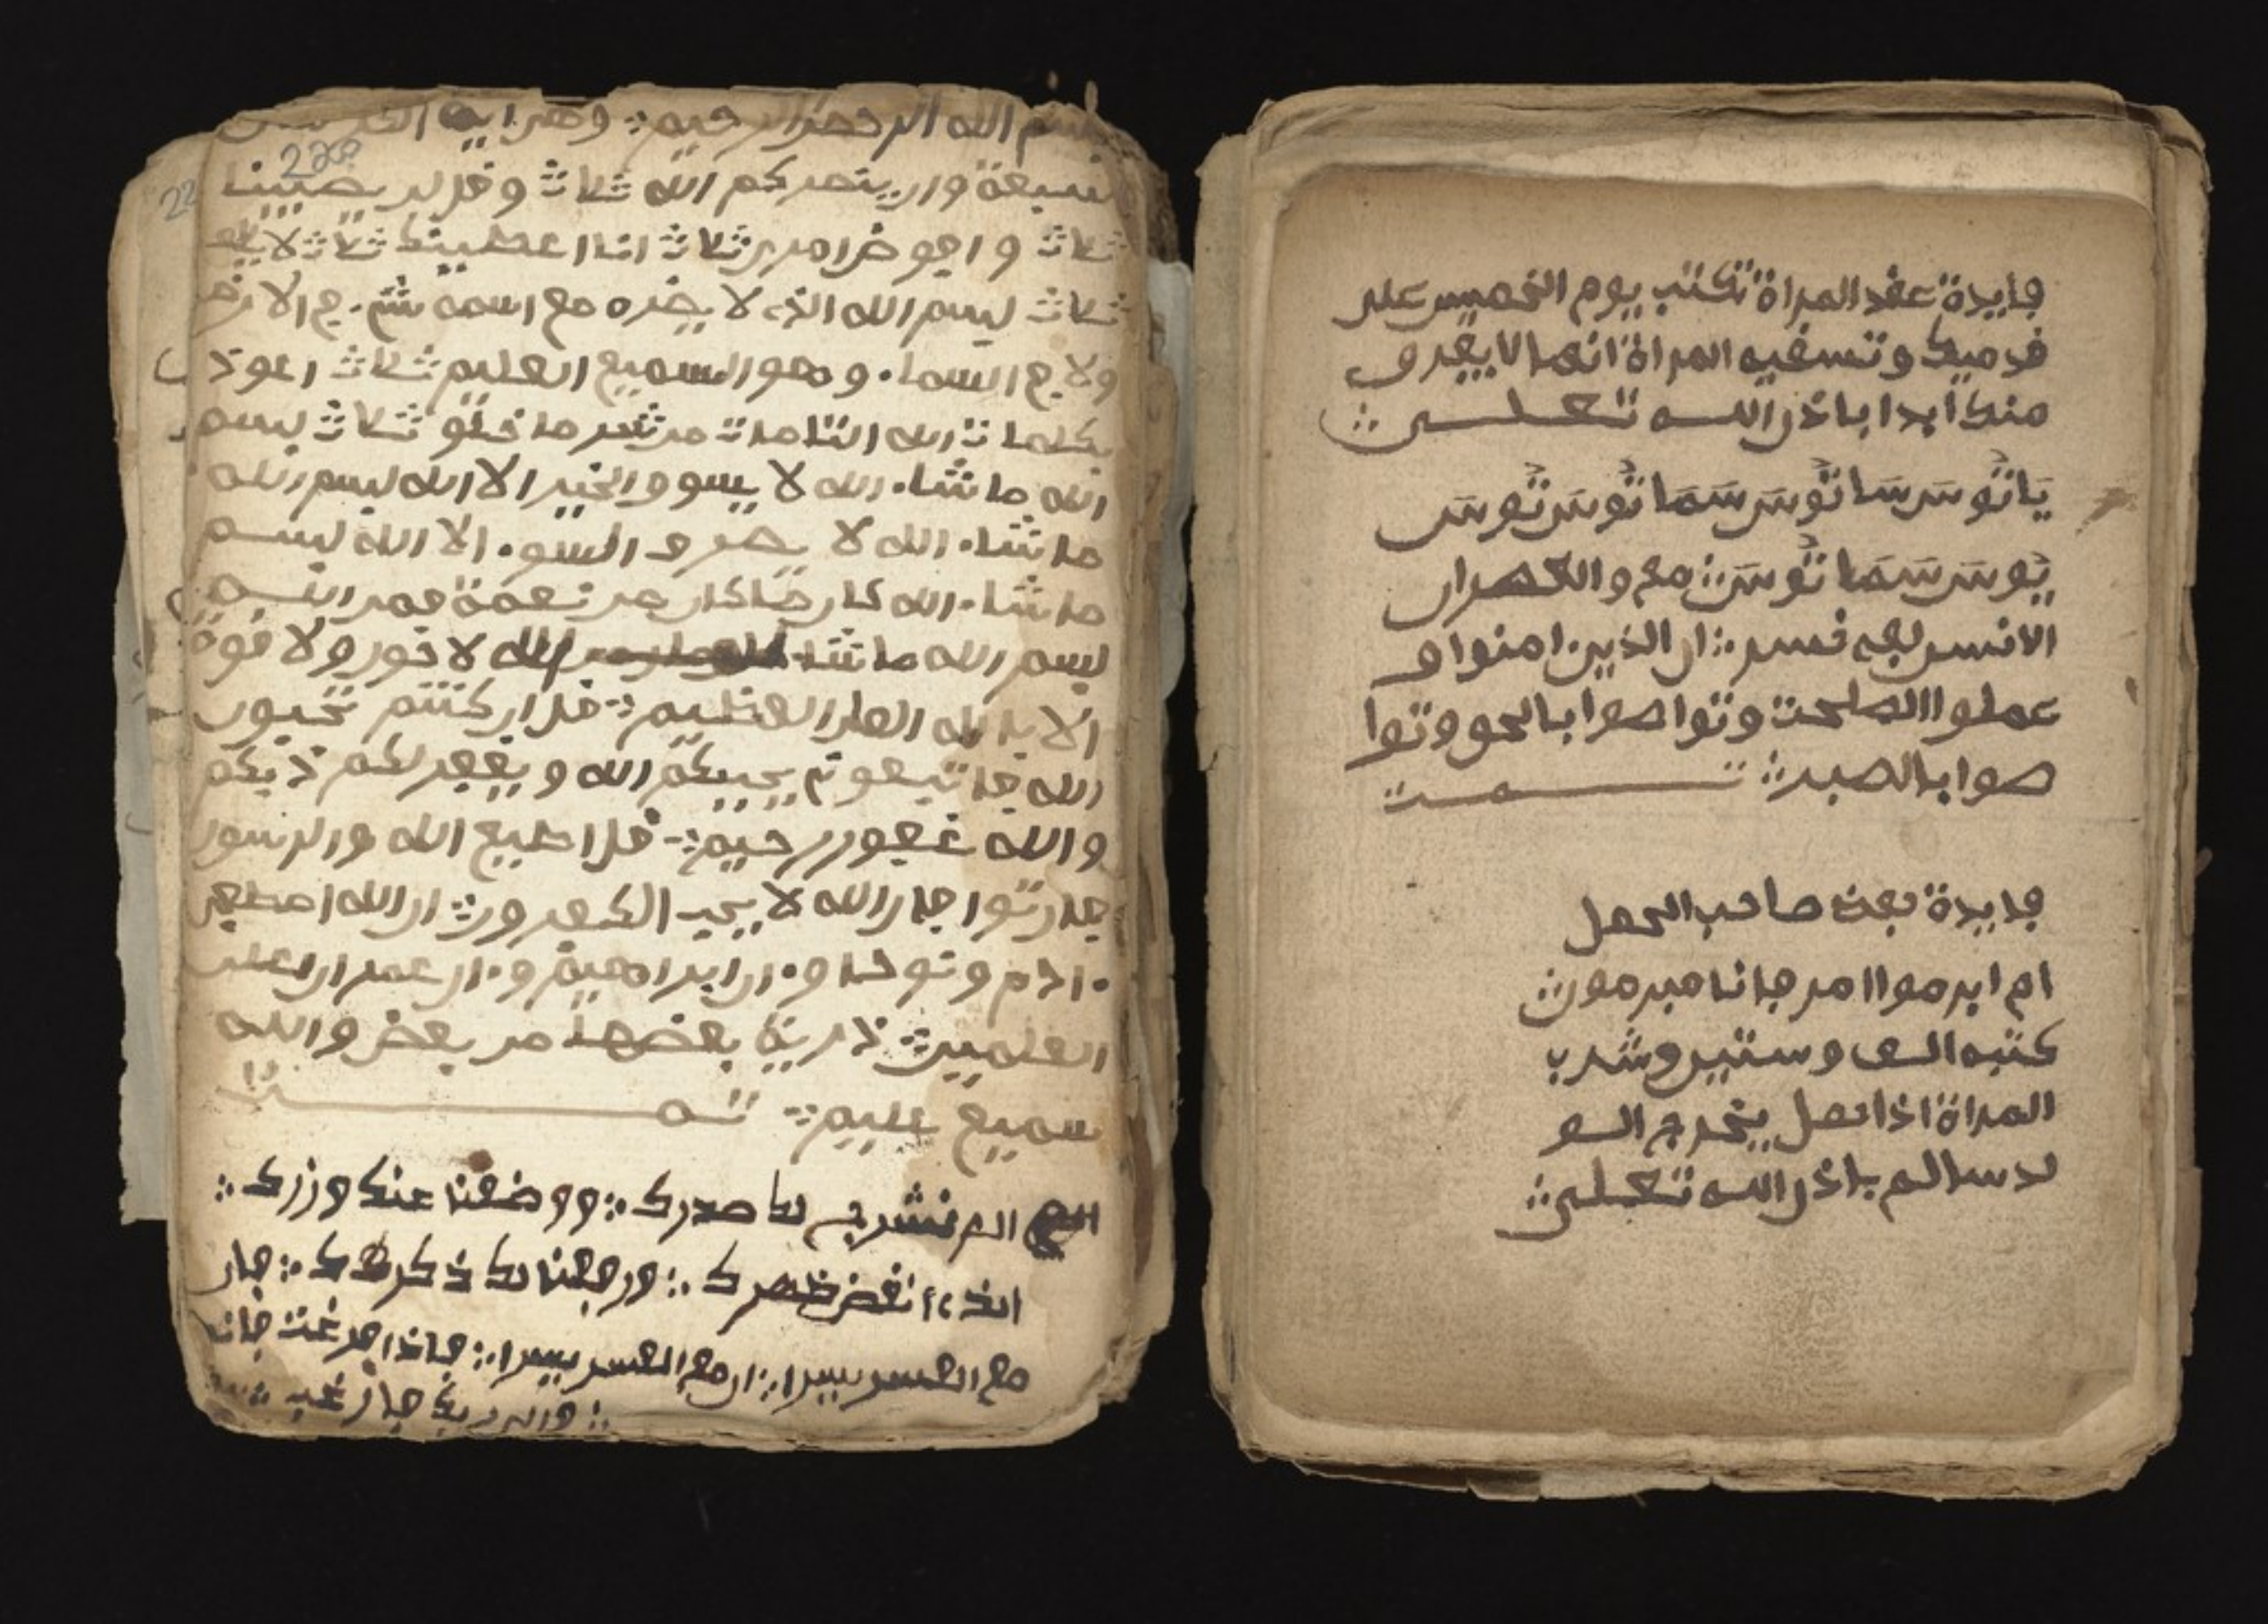 فايدة عقد المراة تكتب يوم الخميس على
قدميك وتسقيه المراة انها لا يفرق
منك ابدا باذن الله تعلى
يَانُوسَ سَا نُوسَ سَمَا نُوسَ نُوسَ
يُوسَ سَمَا نُوسَ مع والعصران
الانسن لفى خسر ان الذين امنوا و
عملوا الصلحت وتواصوا بالحق وتوا
صوا بالصبر تمت
فايدة صاحب الحمل
ام ابرموا امر فانا مبرمون
كتبه الف وستين وشرب
المراة اذا يخرج الــو
لد سالم باذن الله تعلى
بسم الله الرحمن الرحيم واية
سبعة وان ينصركم الله ثلاث وقل لن يصيبنا
ثلاث وافوض امرى ثلاث انا اعطينك ثلاث
ثلاث بسم الله الذى لا يضره مع اسمه شئ في الارض
ولا في السماء وهو السميع العليم ثلاث اعوذ
بكلمات الله التامات من شر ما خلق ثلاث بسم
الله ماشاء الله لا يسوق الخير الا الله بسم الله
ماشاء الله لا يصرف السوء الا الله بسم
ماشاء الله كان ماكان من نعمة فمن الله
بسم الله ماشاء الله لا حول ولا قوة
الا بالله العلى العظيم قل ان كنتم تحبون
الله فاتبعونى يحببكم الله ويغفر لكم ذنبكم
والله غفور رحيم قل اطيع الله والرسول
فان تولوا فان الله لا يحب الكفرين ان الله اصطفى
ءادم ونوحا وءال ابراهيم وءال عمران على
العلمين ذرية بعضها من بعض والله
سميع عليم تمت
الم نشرح لك صدرك ووضعنا عنك وزرك
الذى أنقض ظهرك ورفعنا لك ذكرك فان
مع العسر يسرا ان مع العسر يسرا فاذا فرغت فانصب
والى ربك فارغب